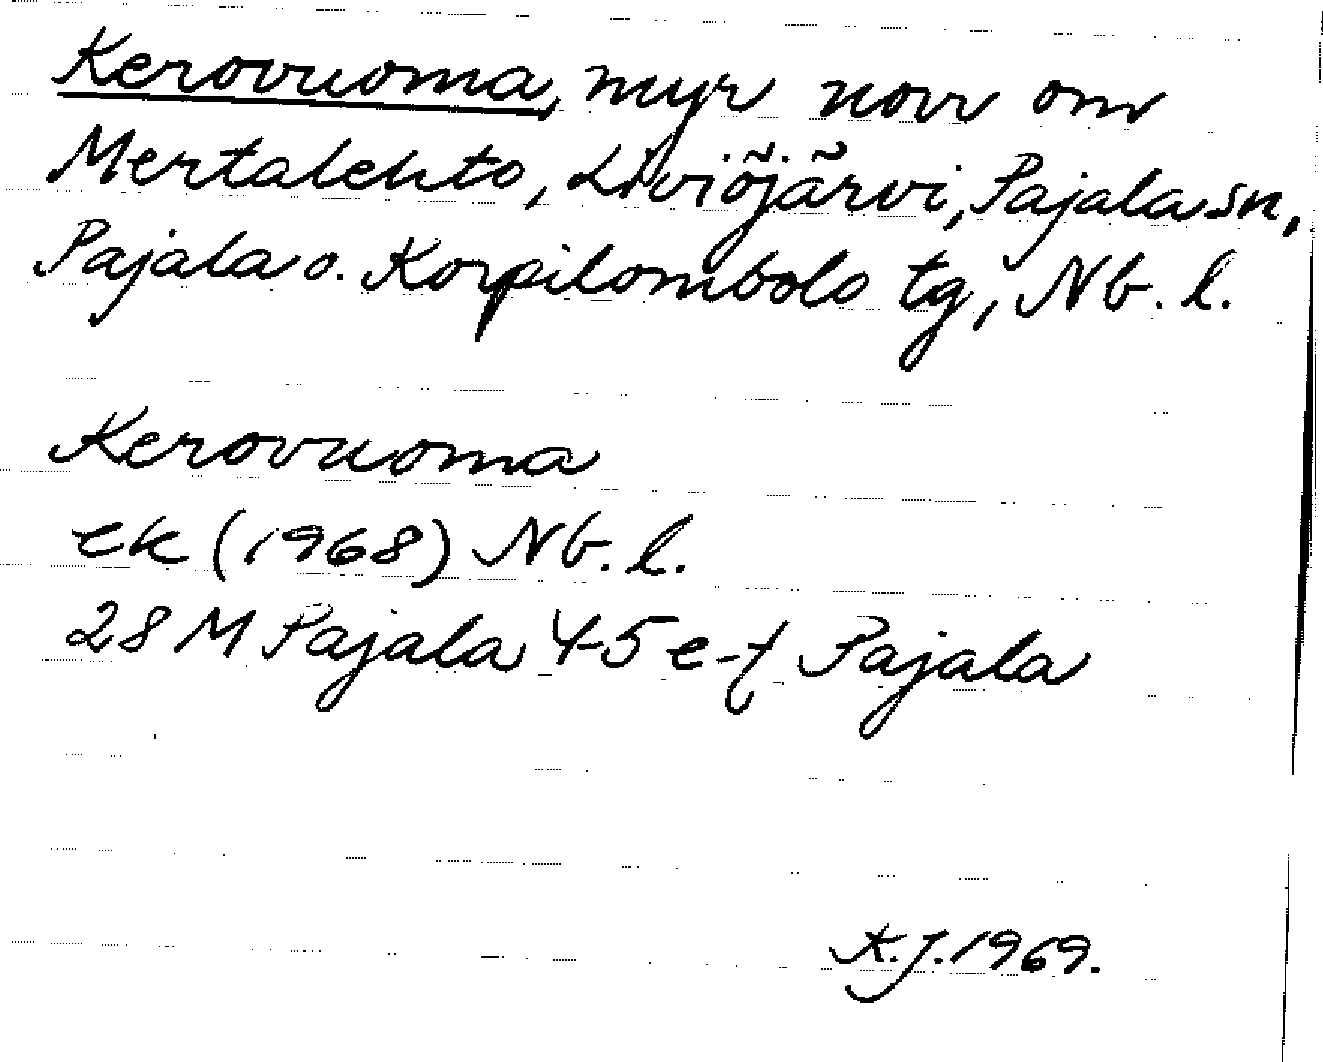 Kerovuoma, myr norr om
Mertalehto, Liviöjärvi, Pajala sn,
Pajala o. Korpilombolo tg, Nb. l.
Kerovuoma
ek (1968) Nb. l.
28 M Pajala 4-5 e-f Pajala
K.J. 1969.